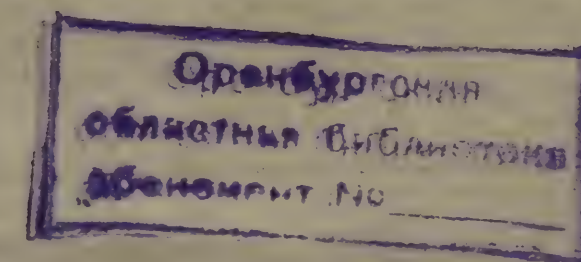 Оренбургская
областная библиотека
абонемент №